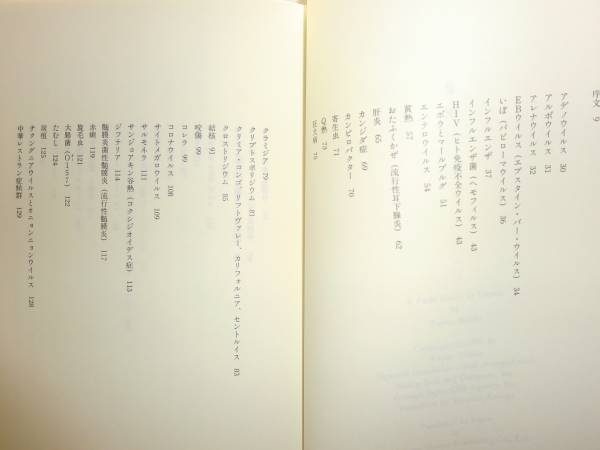 序文 9
アデノウイルス 30
アルボウイルス 31
アレナウイルス 32
EBウイルス（エプスタイン・バー・ウイルス） 34
いぼ（パピローマウイルス） 36
インフルエンザ 37
インフルエンザ菌（ヘモフィルス） 43
HIV（ヒト免疫不全ウイルス） 45
エボラとマールブルグ 51
エンテロウイルス 54
黄熱 57
おたふくかぜ（流行性耳下腺炎） 62
肝炎 65
カンジダ症 69
カンピロバクター 70
寄生虫 71
Q熱 75
クラミジア 79
クリプトスポリジウム 81
クリミア・コンゴ、リフトヴァレー、カリフォルニア、セントルイス 83
クロストリジウム 85
結核 91
咬傷 99
コレラ 99
コロナウイルス 108
サイトメガロウイルス 109
サルモネラ 111
サンジョアキン谷熱（コクシジオイデス症） 113
ジフテリア 114
髄膜炎菌性髄膜炎（流行性髄膜炎） 117
赤痢 119
旋毛虫 121
大腸菌（O-157） 122
たむし 124
炭疽 125
チクングニアウイルスとオニョンニョンウイルス 128
中華レストラン症候群 129